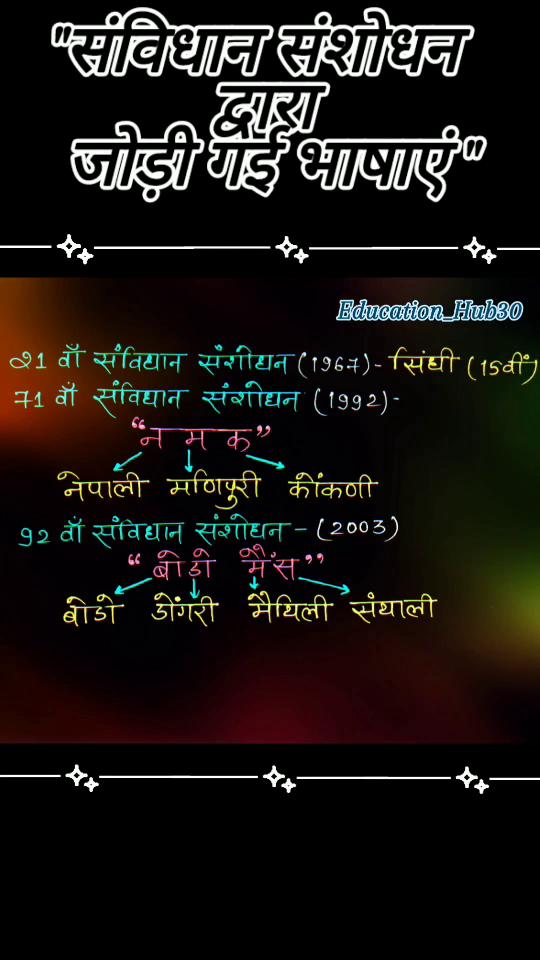 "संविधान संशोधन
द्वारा
जोड़ी गई भाषाएं"
Education_Hub30
21 वाँ संविधान संशोधन (1967)- सिंधी (15वीं)
71 वाँ संविधान संशोधन (1992)-
“न म क”
नेपाली मणिपुरी कोंकणी
92 वाँ संविधान संशोधन - (2003)
“बोडो मैंस”
बोडो डोंगरी मैथिली संथाली